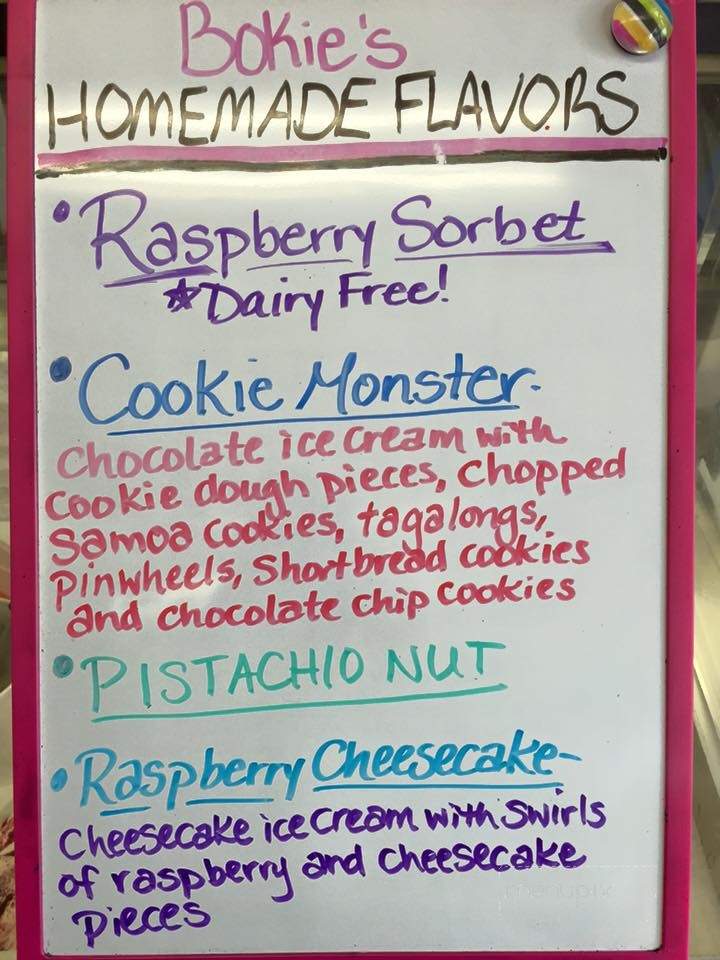 Bokie's
HOMEMADE FLAVORS
• Raspberry Sorbet
*Dairy Free!
• Cookie Monster-
Chocolate ice cream with
Cookie dough pieces, Chopped
Samoa Cookies, tagalongs,
Pinwheels, Shortbread cookies
and chocolate chip cookies
• PISTACHIO NUT
• Raspberry Cheesecake-
Cheesecake ice cream with Swirls
of raspberry and cheesecake
Pieces
menupix